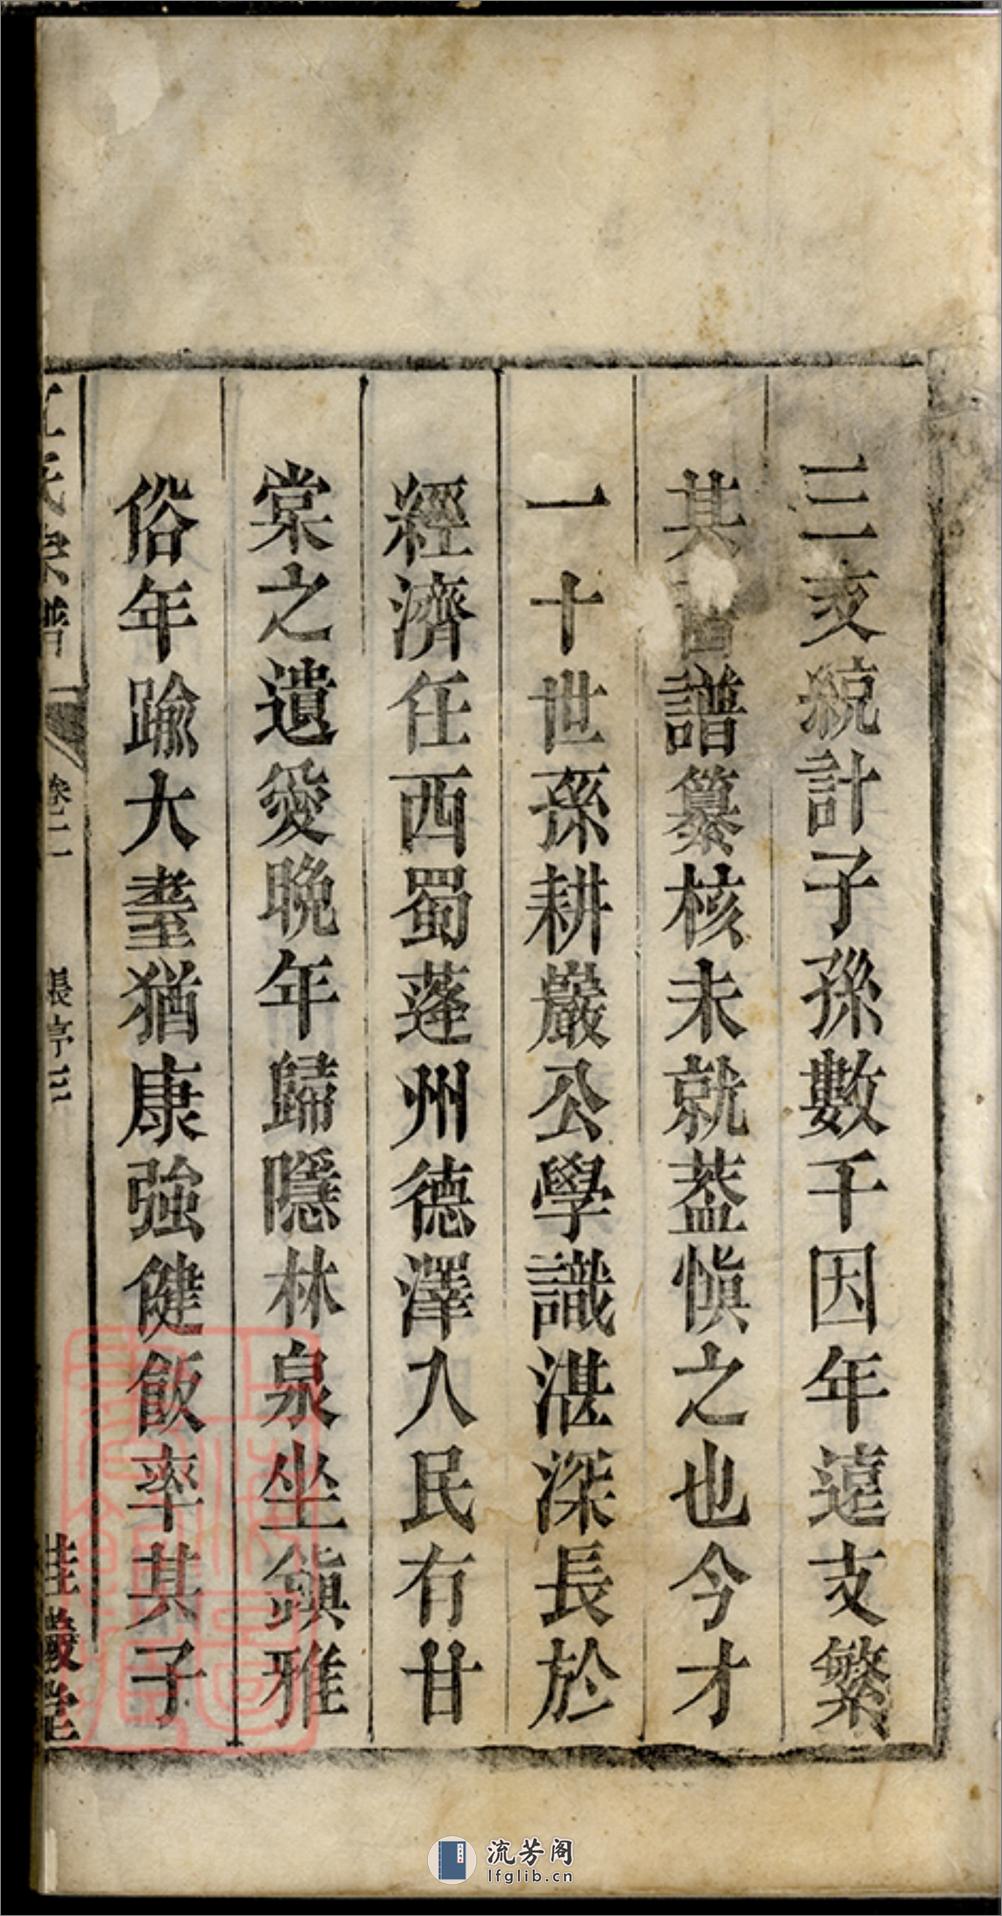 三支統計子孫數千因年遠支繁
其舊譜纂核未就蓋慎之也今才
一十世孫耕巖公學識湛深長於
經濟任西蜀蓬州德澤入民有甘
棠之遺愛晚年歸隱林泉坐鎮雅
俗年踰大耋猶康強健飯率其子
氏宗譜
卷二
張序三
桂巖堂
流芳阁
lfglib.cn